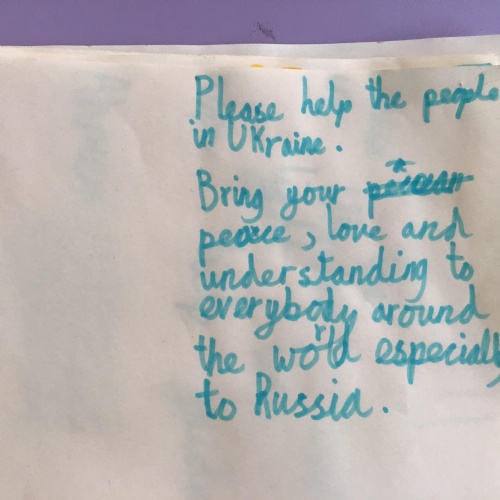 Please help the people
in UKraine.
Bring your
peace, love and
understanding to
everybody around
the world especially
to Russia.